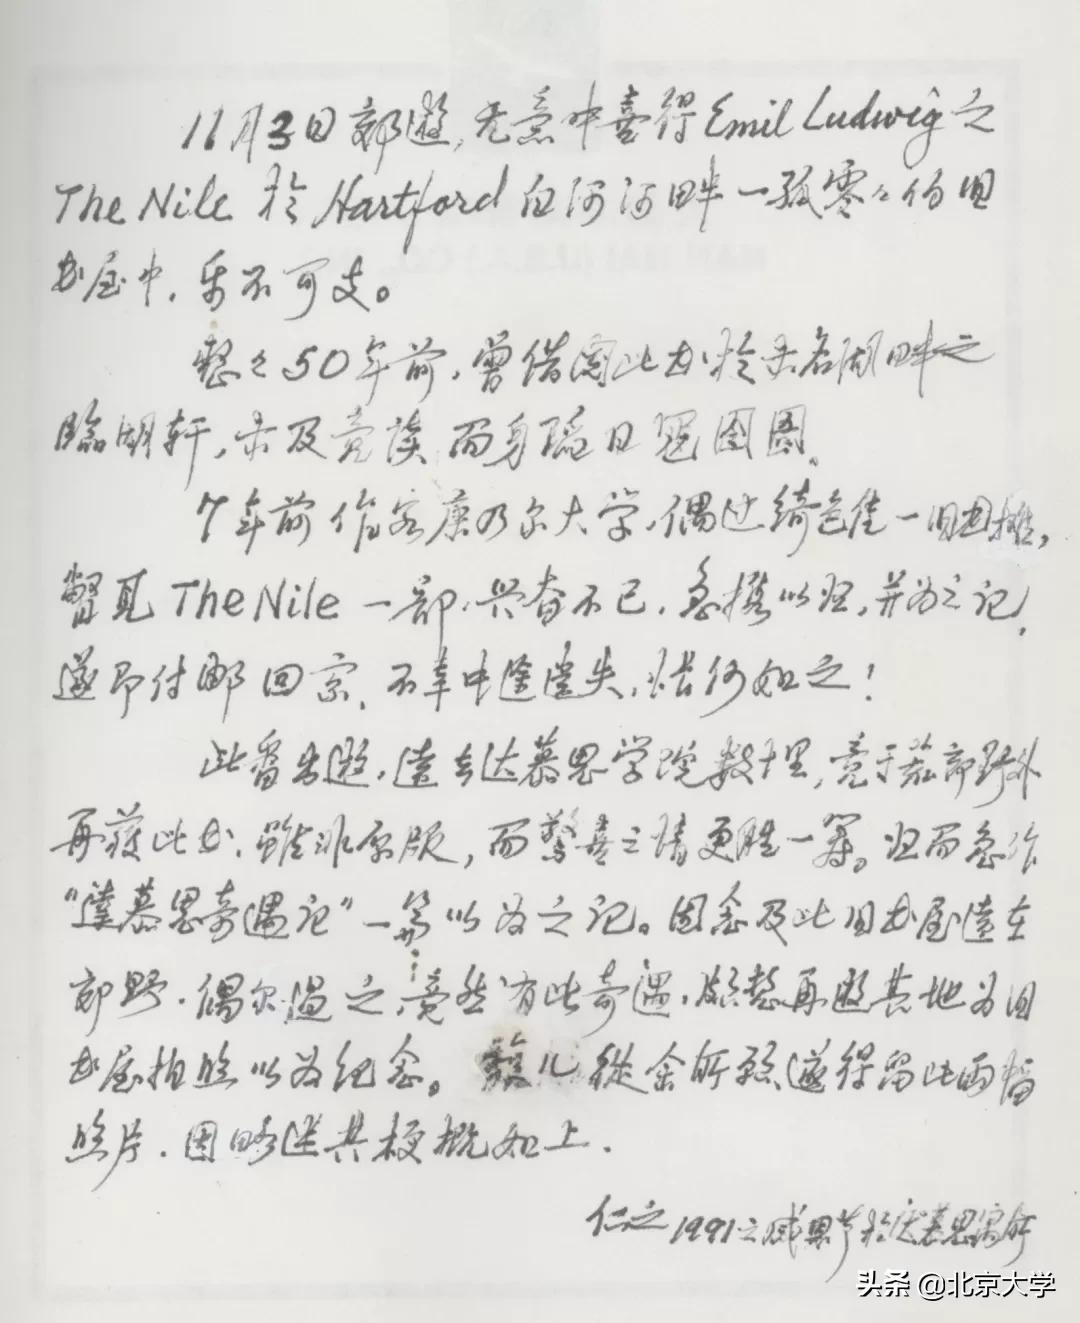 11月3日郊遊,无意中喜得Emil Ludwig之
The Nile 於 Hartford 白河河畔一孤零々的旧
书屋中,乐不可支。
整々50年前,曾借阅此书於未名湖畔之
臨湖轩,未及竟读而身陷日寇囹圄。
7年前作客康乃尔大学,偶过綺色佳一旧书摊,
瞥見 The Nile 一部,兴奋不已,急携以归,并为之记,
遂即付邮回京,不幸中途遗失,怅何如之!
此番出遊,遠去达慕思学院数十里,竟于荒郊野外
再获此书,雖非原版,而驚喜之情更胜一筹。归而急作
“達慕思奇遇记”一篇以为之记。因念及此旧书屋遠在
郊野,偶尔過之,竟然有此奇遇,願再遊其地为旧
书屋拍照以为纪念。馥儿從余所願,遂得留此两幅
照片,因略述其梗概如上.
仁之1991之感恩节於达慕思寓所
头条 @北京大学